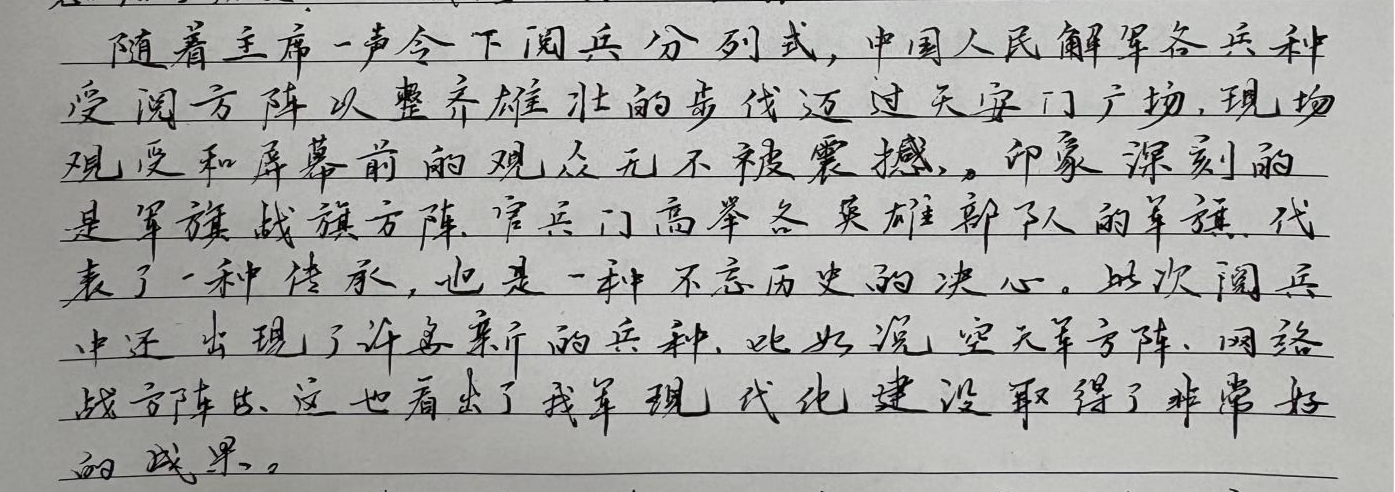 随着主席一声令下阅兵分列式，中国人民解军各兵种
受阅方阵以整齐雄壮的步伐迈过天安门广场，现场
观受和屏幕前的观众无不被震撼。印象深刻的
是军旗战旗方阵，官兵门高举各英雄部队的军旗，代
表了一种传承，也是一种不忘历史的决心。此次阅兵
中还出现了许多新的兵种，比如说空天军方阵、网络
战方阵出、这也看出了我军现代化建设取得了非常好
的成果。